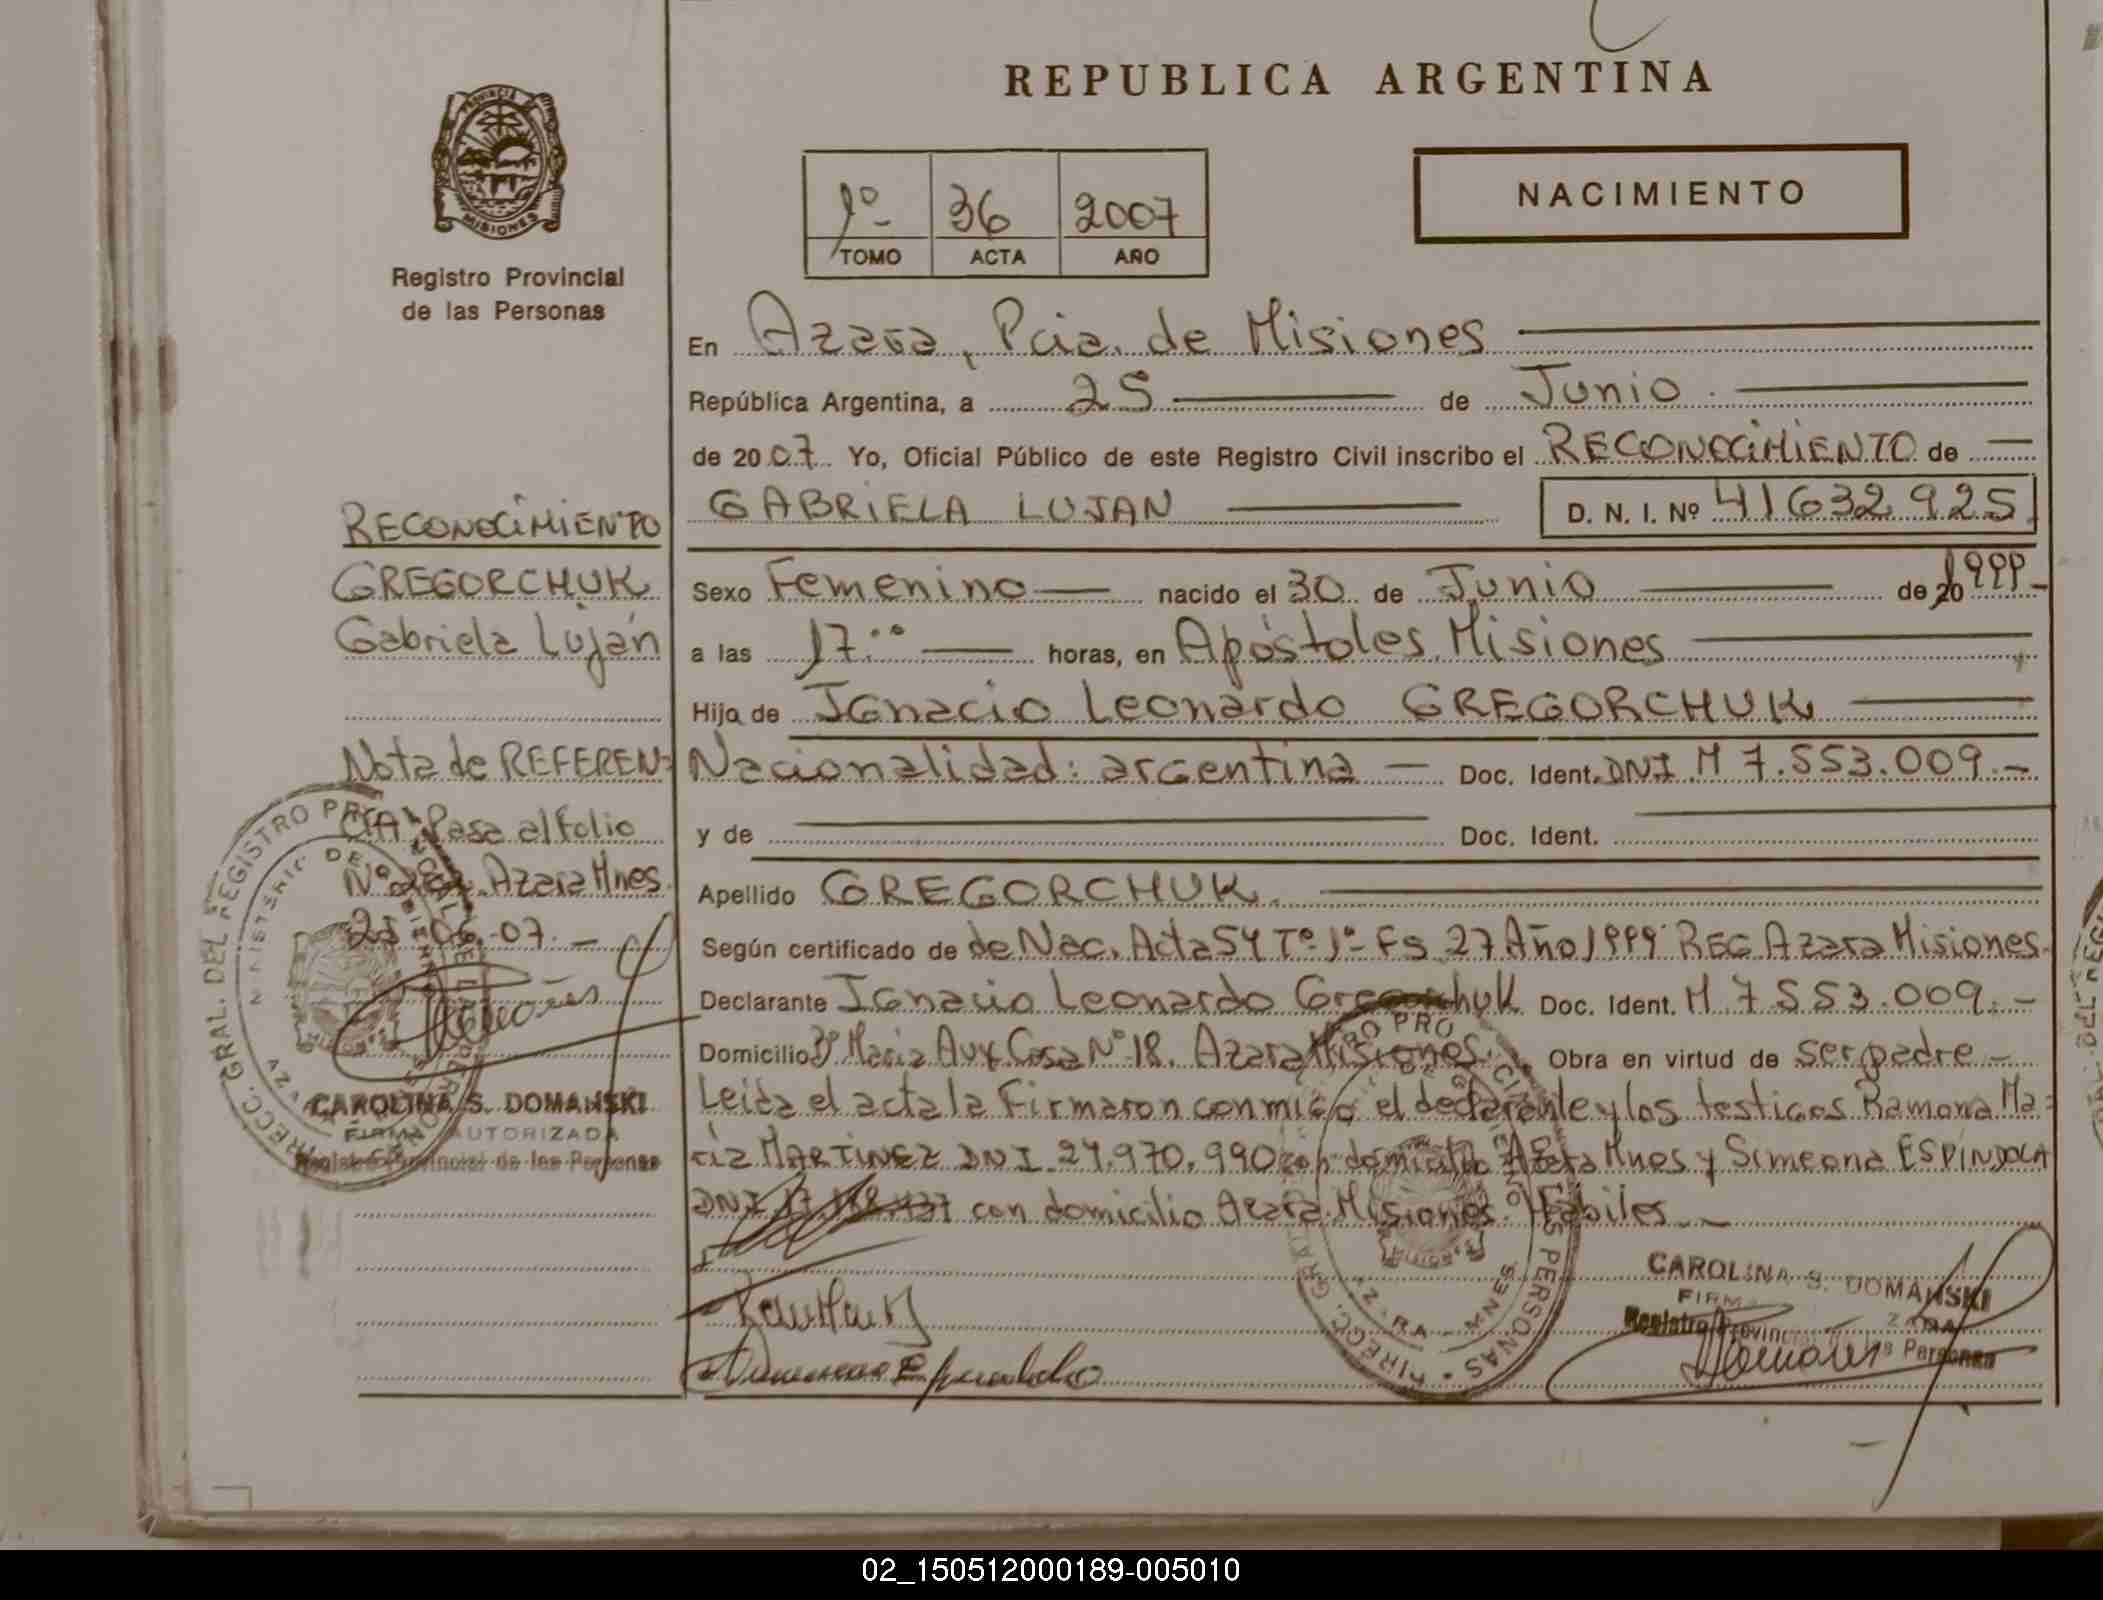 REPUBLICA ARGENTINA
PROVINCIA DE
MISIONES
Registro Provincial
de las Personas
NACIMIENTO
1º 36 2007
TOMO ACTA AÑO
En Azara, Pcia. de Misiones
República Argentina, a 25 de Junio
de 2007. Yo, Oficial Público de este Registro Civil inscribo el RECONOCIMIENTO de
GABRIELA LUJAN D. N. I. Nº 41632925
Sexo Femenino nacido el 30 de Junio de 20 1999
a las 17:00 horas, en Apóstoles Misiones
Hija de IGnacio Leonardo GREGORCHUK
Nacionalidad: argentina Doc. Ident. DNI M 7.553.009.-
y de Doc. Ident.
Apellido GREGORCHUK.
Según certificado de de Nac. Acta 54 Tº 1º Fs 27 Año 1999 REG Azara Misiones.
Declarante IGnacio Leonardo Gregorchuk Doc. Ident. M 7.553.009.-
Domicilio Bº Maria Aux Casa Nº 18. Azara Misiones. Obra en virtud de ser padre.-
Leida el acta la Firmaron conmigo el declarante y los testigos Ramona Ma=
ria MARTINEZ DNI 24.970.990 con domicilio Azara Mnes y Simeona ESPINDOLA
DNI con domicilio Azara Misiones. Hábiles.-
RECONOCIMIENTO
GREGORCHUK
Gabriela Luján
Nota de REFEREN=
CIA: Pasa al Folio
Nº Azara Mnes.
06-07.-
CAROLINA S. DOMANSKI
FIRMA AUTORIZADA
Registro Provincial de las Personas
CAROLINA S. DOMANSKI
Registro Provincial de las Personas
02_150512000189-005010